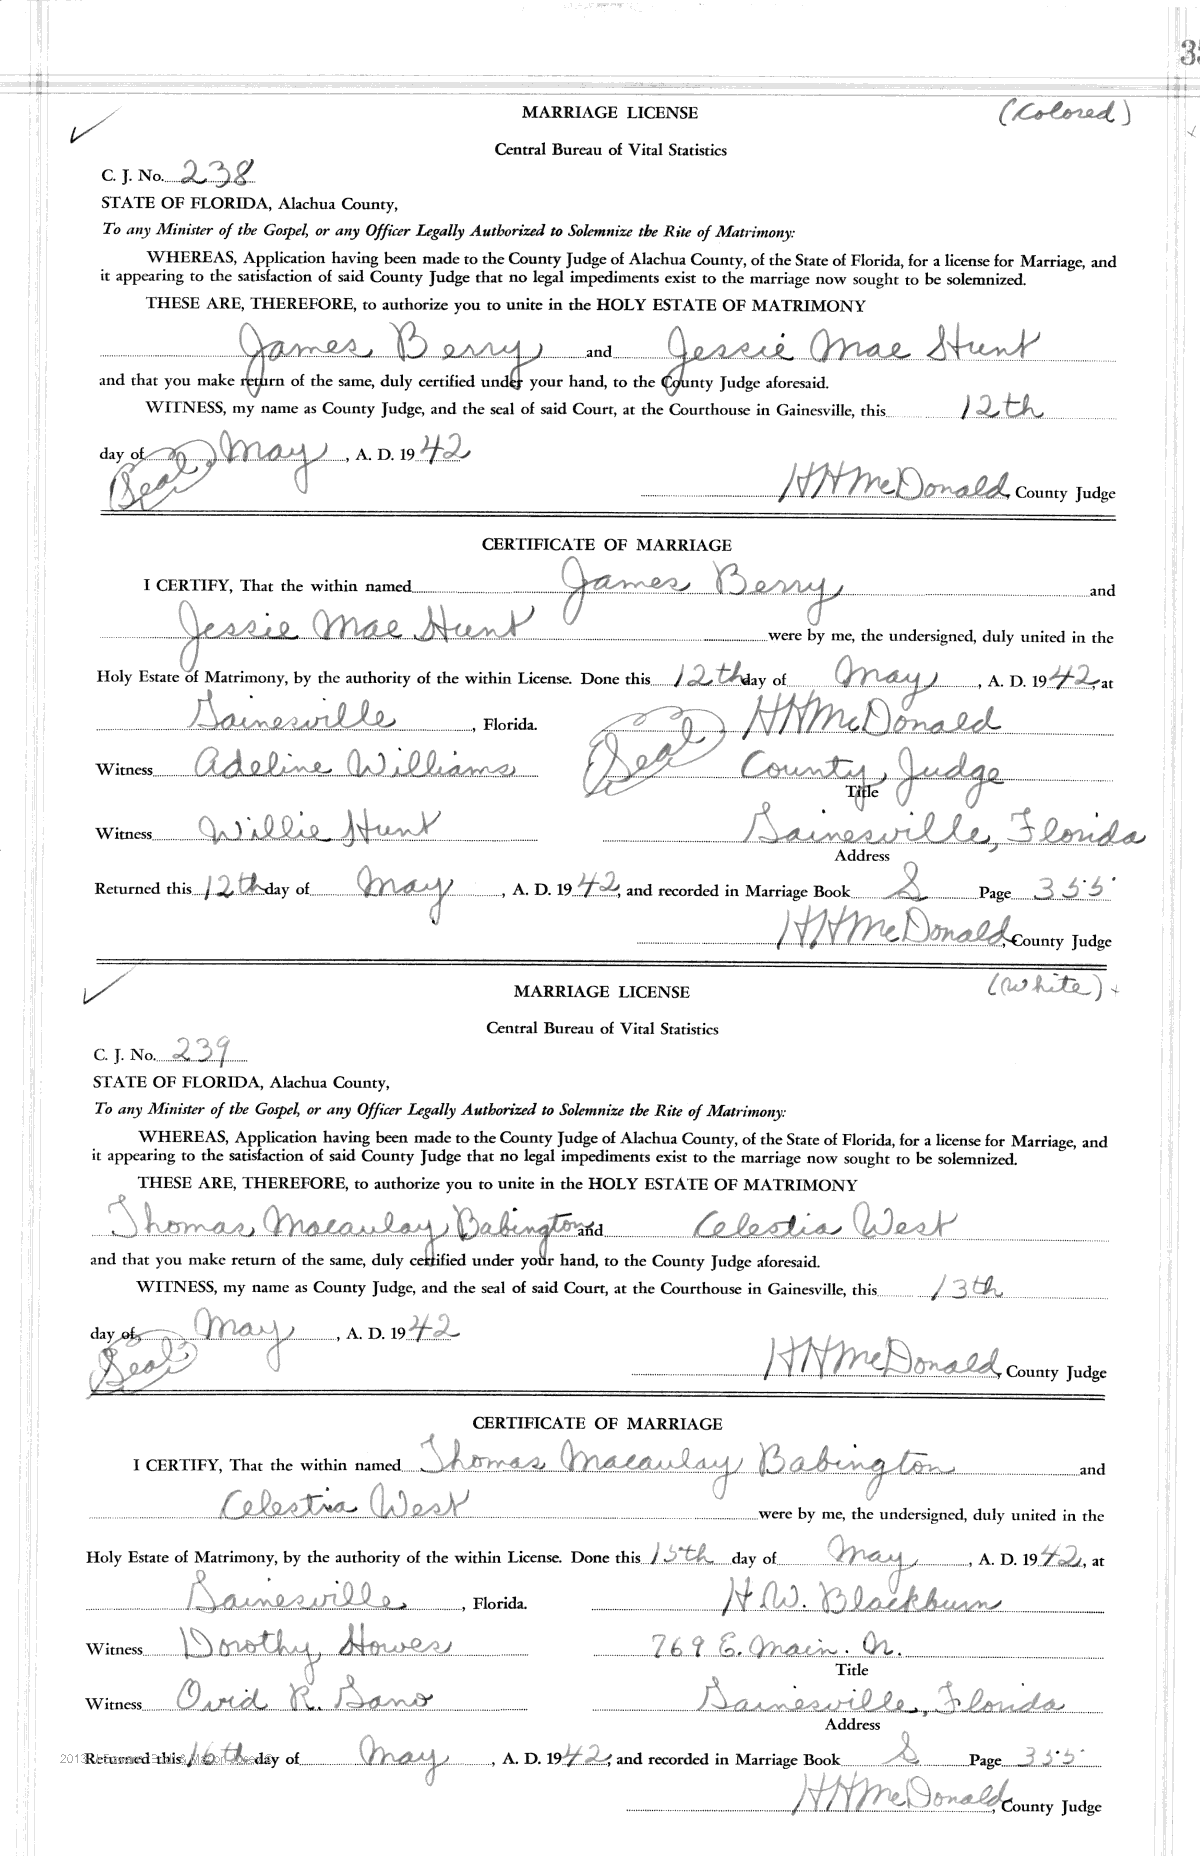 MARRIAGE LICENSE (Colored)
Central Bureau of Vital Statistics
C. J. No. 238
STATE OF FLORIDA, Alachua County,
To any Minister of the Gospel, or any Officer Legally Authorized to Solemnize the Rite of Matrimony:
WHEREAS, Application having been made to the County Judge of Alachua County, of the State of Florida, for a license for Marriage, and
it appearing to the satisfaction of said County Judge that no legal impediments exist to the marriage now sought to be solemnized.
THESE ARE, THEREFORE, to authorize you to unite in the HOLY ESTATE OF MATRIMONY
James Berry and Jessie Mae Hunt
and that you make return of the same, duly certified under your hand, to the County Judge aforesaid.
WITNESS, my name as County Judge, and the seal of said Court, at the Courthouse in Gainesville, this 12th
day of May, A. D. 1942
(Seal) HHMcDonald, County Judge
CERTIFICATE OF MARRIAGE
I CERTIFY, That the within named James Berry and
Jessie Mae Hunt were by me, the undersigned, duly united in the
Holy Estate of Matrimony, by the authority of the within License. Done this 12th day of May, A. D. 1942, at
Gainesville, Florida. (Seal) HHMcDonald
Witness Adeline Williams County Judge
Title
Witness Willie Hunt Gainesville, Florida
Address
Returned this 12th day of May, A. D. 1942, and recorded in Marriage Book S Page 355
HHMcDonald, County Judge
MARRIAGE LICENSE (White)
Central Bureau of Vital Statistics
C. J. No. 239
STATE OF FLORIDA, Alachua County,
To any Minister of the Gospel, or any Officer Legally Authorized to Solemnize the Rite of Matrimony:
WHEREAS, Application having been made to the County Judge of Alachua County, of the State of Florida, for a license for Marriage, and
it appearing to the satisfaction of said County Judge that no legal impediments exist to the marriage now sought to be solemnized.
THESE ARE, THEREFORE, to authorize you to unite in the HOLY ESTATE OF MATRIMONY
Thomas Macaulay Babington and Celestia West
and that you make return of the same, duly certified under your hand, to the County Judge aforesaid.
WITNESS, my name as County Judge, and the seal of said Court, at the Courthouse in Gainesville, this 13th
day of May, A. D. 1942
(Seal) HHMcDonald, County Judge
CERTIFICATE OF MARRIAGE
I CERTIFY, That the within named Thomas Macaulay Babington and
Celestia West were by me, the undersigned, duly united in the
Holy Estate of Matrimony, by the authority of the within License. Done this 15th day of May, A. D. 1942, at
Gainesville, Florida. H. W. Blackburn
Witness Dorothy Howes 769 E. Main. N.
Title
Witness Ovid R. Gano Gainesville, Florida
Address
Returned this 16th day of May, A. D. 1942, and recorded in Marriage Book S Page 355
HHMcDonald, County Judge